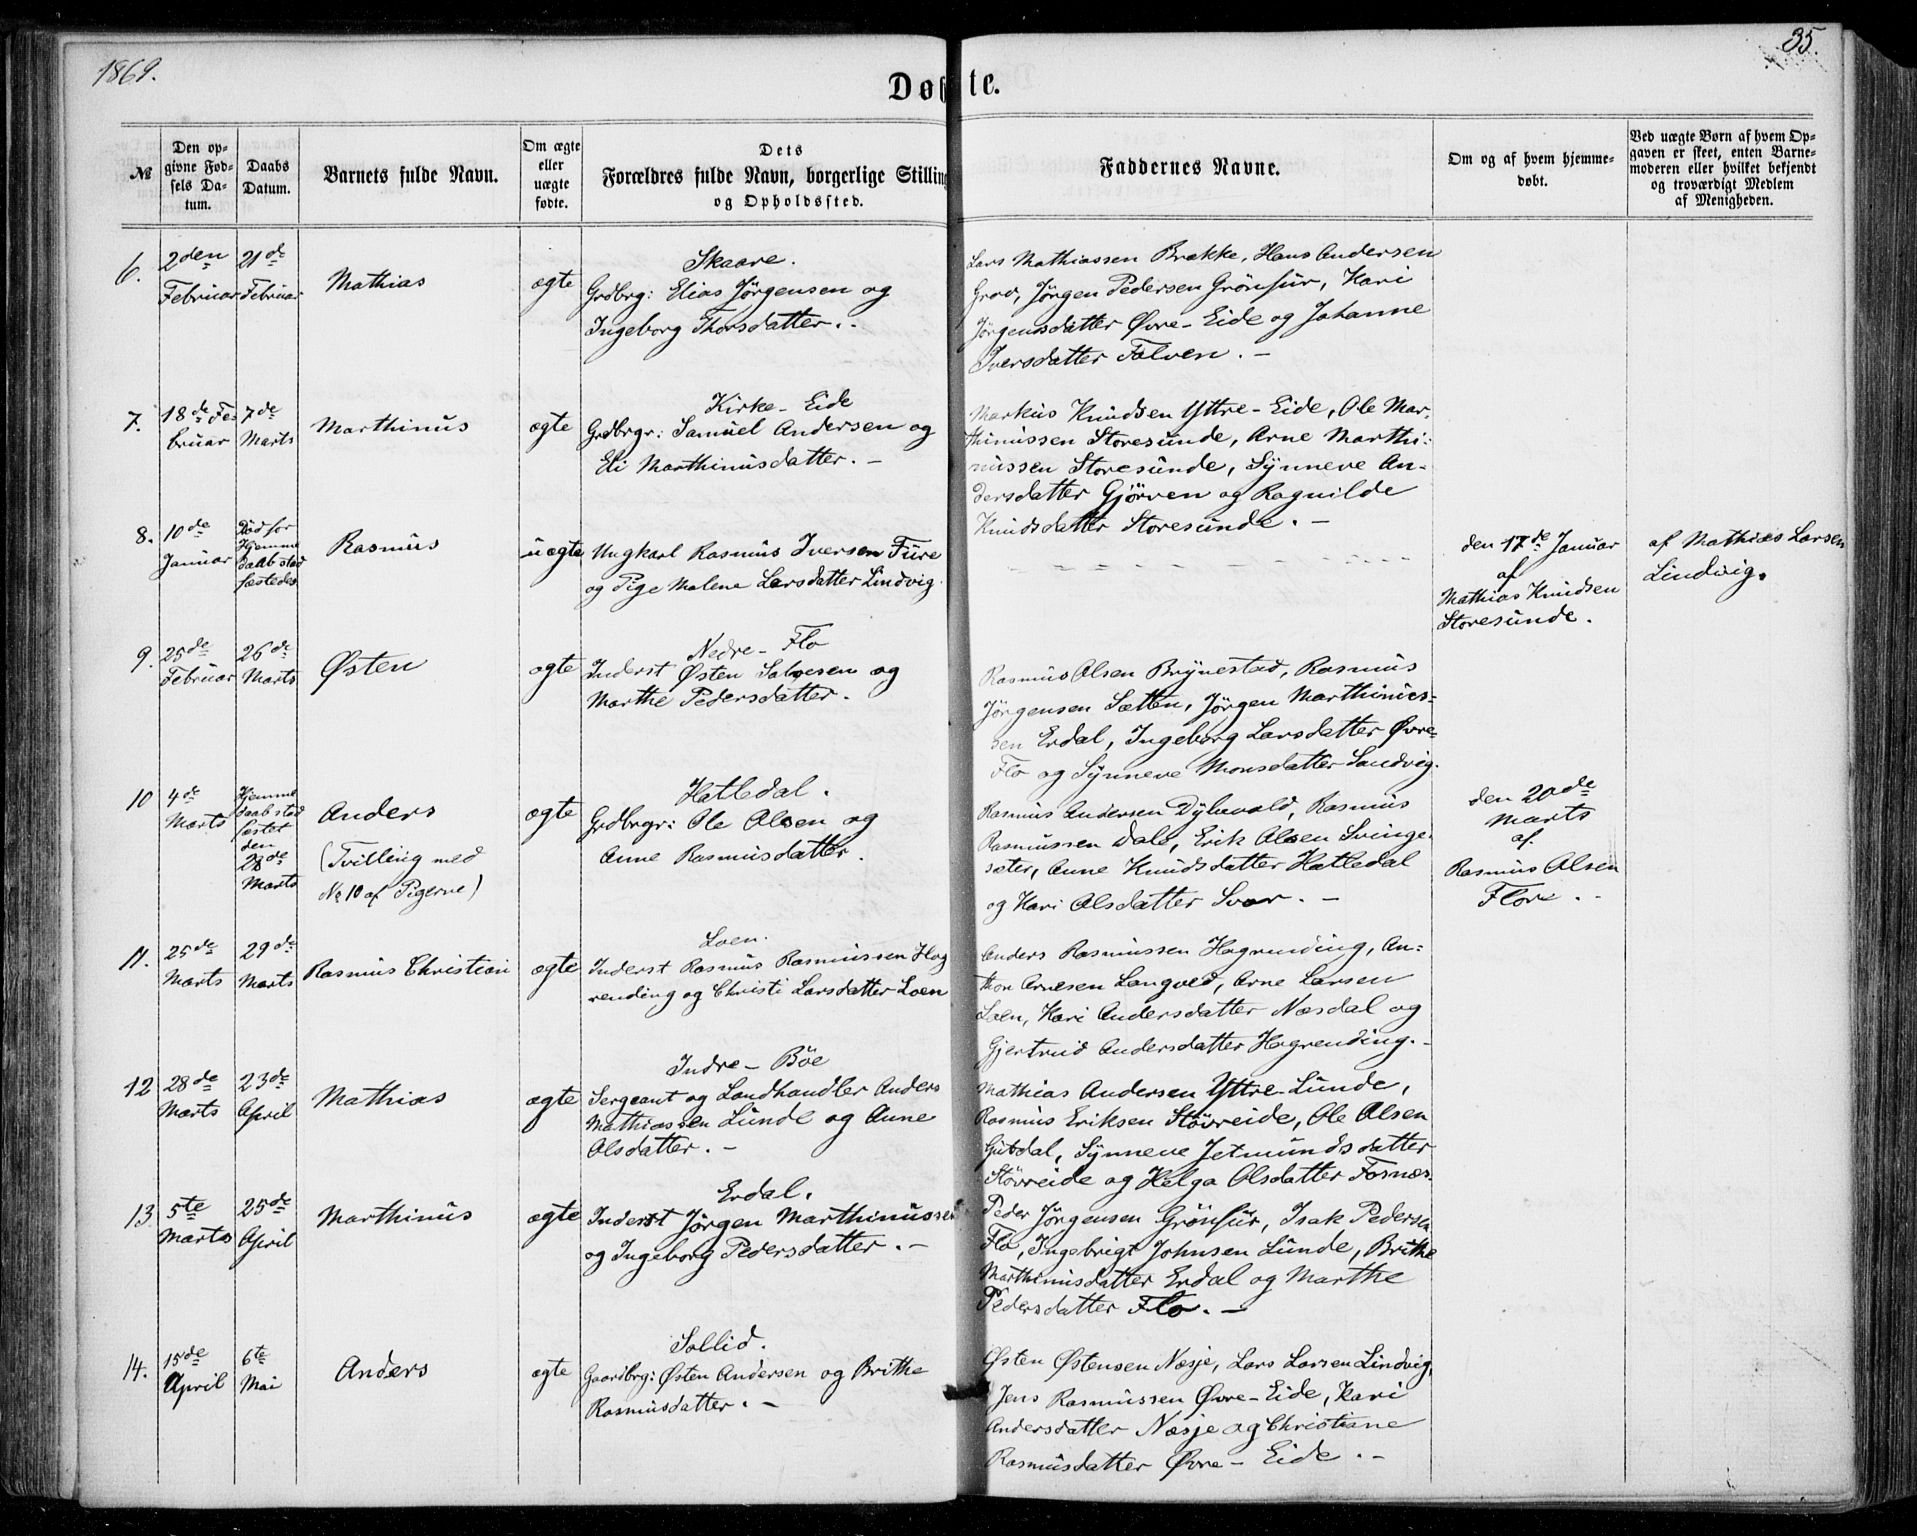 1869.
35.
Døbte.
№
Den opgivne Fødsels Datum.
Daabs Datum.
Barnets fulde Navn.
Om ægte eller uægte fødte.
Dets
Forældres fulde Navn, borgerlige Stilling
og Opholdssted.
Faddernes Navne.
Om og af hvem hjemmedøbt.
Ved uægte Børn af hvem Opgaven er skeet, enten Barnemoderen eller hvilket bekjendt og troværdigt Medlem af Menigheden.
6.
2den Februar
21de Februar
Mathias
ægte
Skaare.
Grdbrg: Elias Jörgensen og
Ingeborg Thorsdatter.-
Lars Mathiassen Brække, Hans Andersen
Grov, Jörgen Pedersen Grönfur, Kari
Jörgensdatter Øvre-Eide og Johanne
Iversdatter Folven. -
7.
18de Februar
7de Marts
Marthinus
ægte
Kirke-Eide
Grdbrgr: Samuel Andersen og
Eli Marthinusdatter. -
Markus Knudsen Yttre-Eide, Ole Mar-
thinussen Storesunde, Arne Marthi-
nussen Storesunde, Synneve An-
dersdatter Gjörven og Ragnilde
Knudsdatter Storesunde. -
8.
10de Januar
Död før
Hjemme
daab stad
fæstedes
Rasmus
uægte
Ungkarl Rasmus Iversen Fure
og Pige Malene Larsdatter Lindvig.
den 17de Januar
af
Mathias Knudsen
Storesunde.
af Mathias Larsen
Lindvig.
9.
25de Februar
26de Marts
Østen
ægte
Nedre-Flo
Inderst Østen Salvesen og
Marthe Pedersdatter.
Rasmus Olsen Brynestad, Rasmus
Jörgensen Sætten, Jörgen Marthinus-
sen Erdal, Ingeborg Larsdatter Øvre-
Flo og Synneve Monsdatter Sandvig.
10
4de Marts
Hjemme
daab stad
fæstet
den
28de
Marts
Anders
(Tvilling med
№ 10 af Pigerne)
ægte
Hatledal.
Grdbrgr: Ole Olsen og
Anne Rasmusdatter.
Rasmus Andersen Dybevold, Rasmus
Rasmussen Dale, Erik Olsen Svinge-
sæter, Anne Knudsdatter Hatledal
og Kari Olsdatter Svor. -
den 20de
Marts
af
Rasmus Olsen
Flore.
11.
25de Marts
29de Marts
Rasmus Christian
ægte
Loen.
Inderst Rasmus Rasmussen Hog
rending og Christi Larsdatter Loen
Anders Rasmussen Hogrending, An-
thon Arnesen Langved, Arne Larsen
Loen, Kari Andersdatter Næsdal og
Gjertrud Andersdatter Hogrending.-
12
28de Marts
23de April
Mathias
ægte
Indre-Böe
Sergeant og Landhandler Anders
Mathiassen Lunde og Anne
Olsdatter. -
Mathias Andersen Yttre-Lunde,
Rasmus Eriksen Stövreide, Ole Olsen
Gutdal, Synneve Jetmundsdatter
Stövreide og Helga Olsdatter Fosnæs.
13
5te Marts
25de April
Marthinus
ægte
Erdal.
Inderst Jörgen Marthinussen
og Ingeborg Pedersdatter. -
Peder Jörgensen Grönfur, Isak Pedersen
Flo, Ingebrigt Johnsen Lunde, Brithe
Marthinusdatter Erdal og Marthe
Pedersdatter Flo. -
14.
15de April
6te Mai
Anders
ægte
Sollid.
Gaardbrg: Østen Andersen og Brithe
Rasmusdatter. -
Østen Østensen Næsje, Lars Larsen Lindvig,
Jens Rasmussen Øvre-Eide, Kari
Andersdatter Næsje og Christiane
Rasmusdatter Øvre-Eide. -